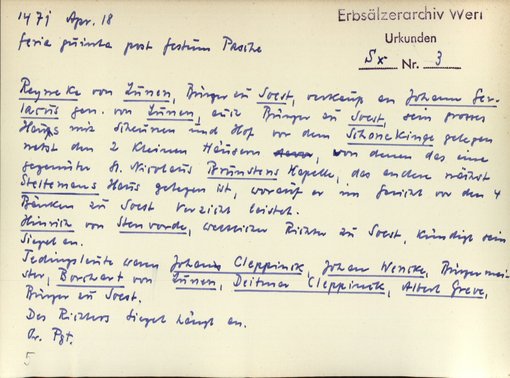 1471 Apr. 18
Erbsälzerarchiv Werl
Urkunden
Sx Nr. 3
feria quinta post festum Pasche
Reyneke von Lünen, Bürger zu Soest, verkauft an Johann Ger-
lacus gen. von Lünen, auch Bürger zu Soest, sein grosses
Haus mit Scheunen und Hof vor dem Schonekinge gelegen
nebst den 2 kleinen Häusern, von denen das eine
gegenüber St. Nicolaus Brunstens Kapelle, das andere nächst
Steltemans Haus gelegen ist, worauf er im Gericht vor den 4
Bänken zu Soest Verzicht leistet.
Hinrich von Stenvorde, weltlicher Richter zu Soest, kündigt sein
Siegel an.
Tedingsleute waren Johans Cleppinck, Johan Mencke, Bürgermei-
ster, Borchart von Lünen, Deitmar Cleppinck, Albert Greve,
Bürger zu Soest.
Des Richters Siegel hängt an.
Or. Pgt.
5